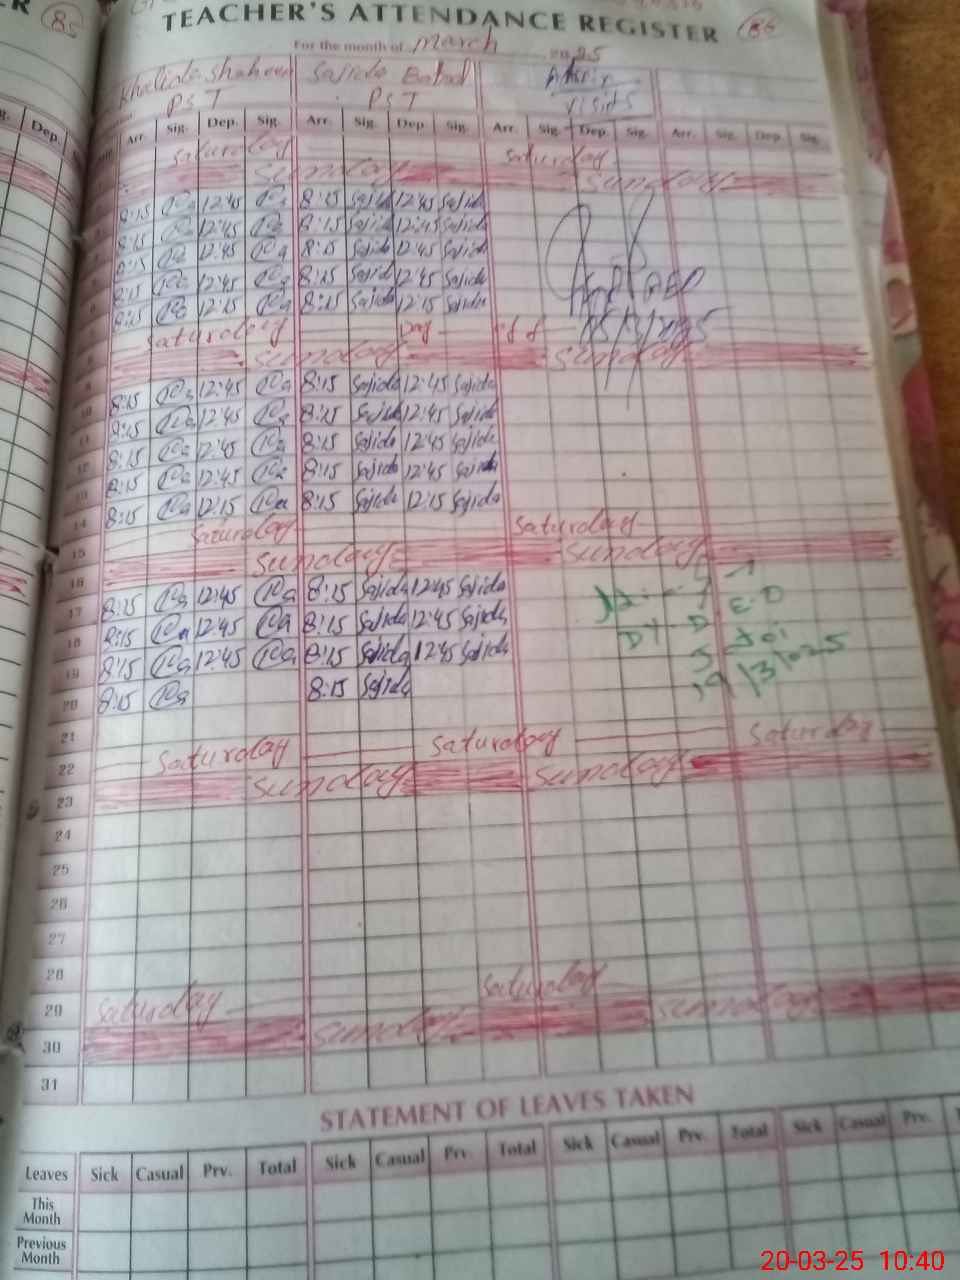 85
TEACHER'S ATTENDANCE REGISTER 86
For the month of March 2025
Khalida Shaheen Sajida
PST PST Visits
Dep. Arr. Sig. Dep. Sig. Arr. Sig. Dep. Sig. Arr. Sig. Dep. Sig. Arr. Sig. Dep. Sig.
Saturday Saturday
Sunday Sunday
8:15 12:45 8:15 Sajida 12:45 Sajida
8:15 12:45 8:15 Sajida 12:45 Sajida
8:15 12:45 8:15 Sajida 12:45 Sajida
8:15 12:45 8:15 Sajida 12:45 Sajida
8:15 12:15 8:15 Sajida 12:15 Sajida
Saturday Day off
Sunday Sunday
8:15 12:45 8:15 Sajida 12:45 Sajida
10 8:15 12:45 8:15 Sajida 12:45 Sajida
11 8:15 12:45 8:15 Sajida 12:45 Sajida
12 8:15 12:45 8:15 Sajida 12:45 Sajida
13 8:15 12:15 8:15 Sajida 12:15 Sajida
14 Saturday Saturday
15 Sunday Sunday
16 8:15 12:45 8:15 Sajida 12:45 Sajida
17 8:15 12:45 8:15 Sajida 12:45 Sajida
18 8:15 12:45 8:15 Sajida 12:45 Sajida
19 8:15 8:15 Sajida 19/3/2025
20
21 Saturday Saturday Saturday
22 Sunday Sunday
23
24
25
26
27
28
29 Saturday Saturday
30 Sunday Sunday
31
STATEMENT OF LEAVES TAKEN
Leaves Sick Casual Prv. Total Sick Casual Prv. Total Sick Casual Prv. Total Sick Casual Prv.
This Month
Previous Month
20-03-25 10:40